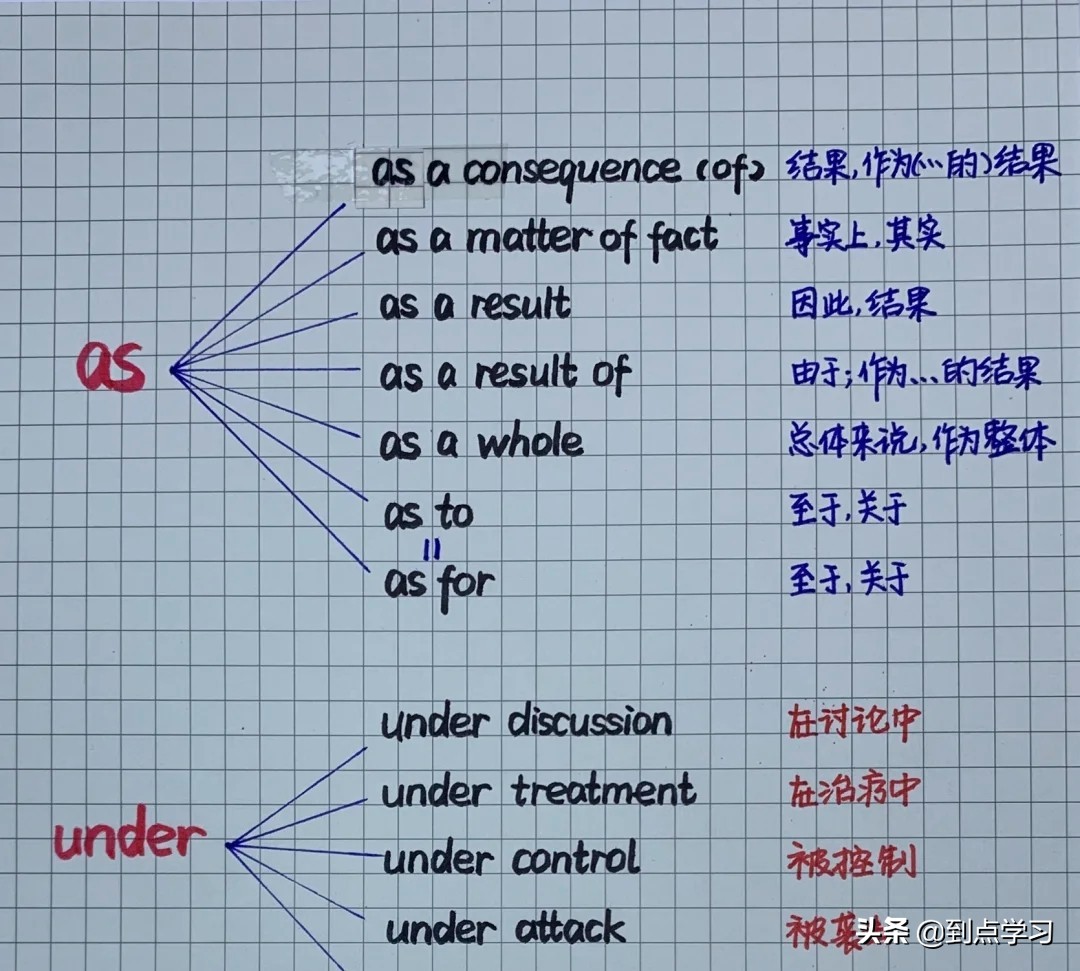 as a consequence (of) 结果,作为(…的)结果
as a matter of fact 事实上,其实
as a result 因此,结果
as
as a result of 由于;作为…的结果
as a whole 总体来说,作为整体
as to 至于,关于
=
as for 至于,关于
under discussion 在讨论中
under treatment 在治疗中
under
under control 被控制
under attack 被袭
头条 @到点学习